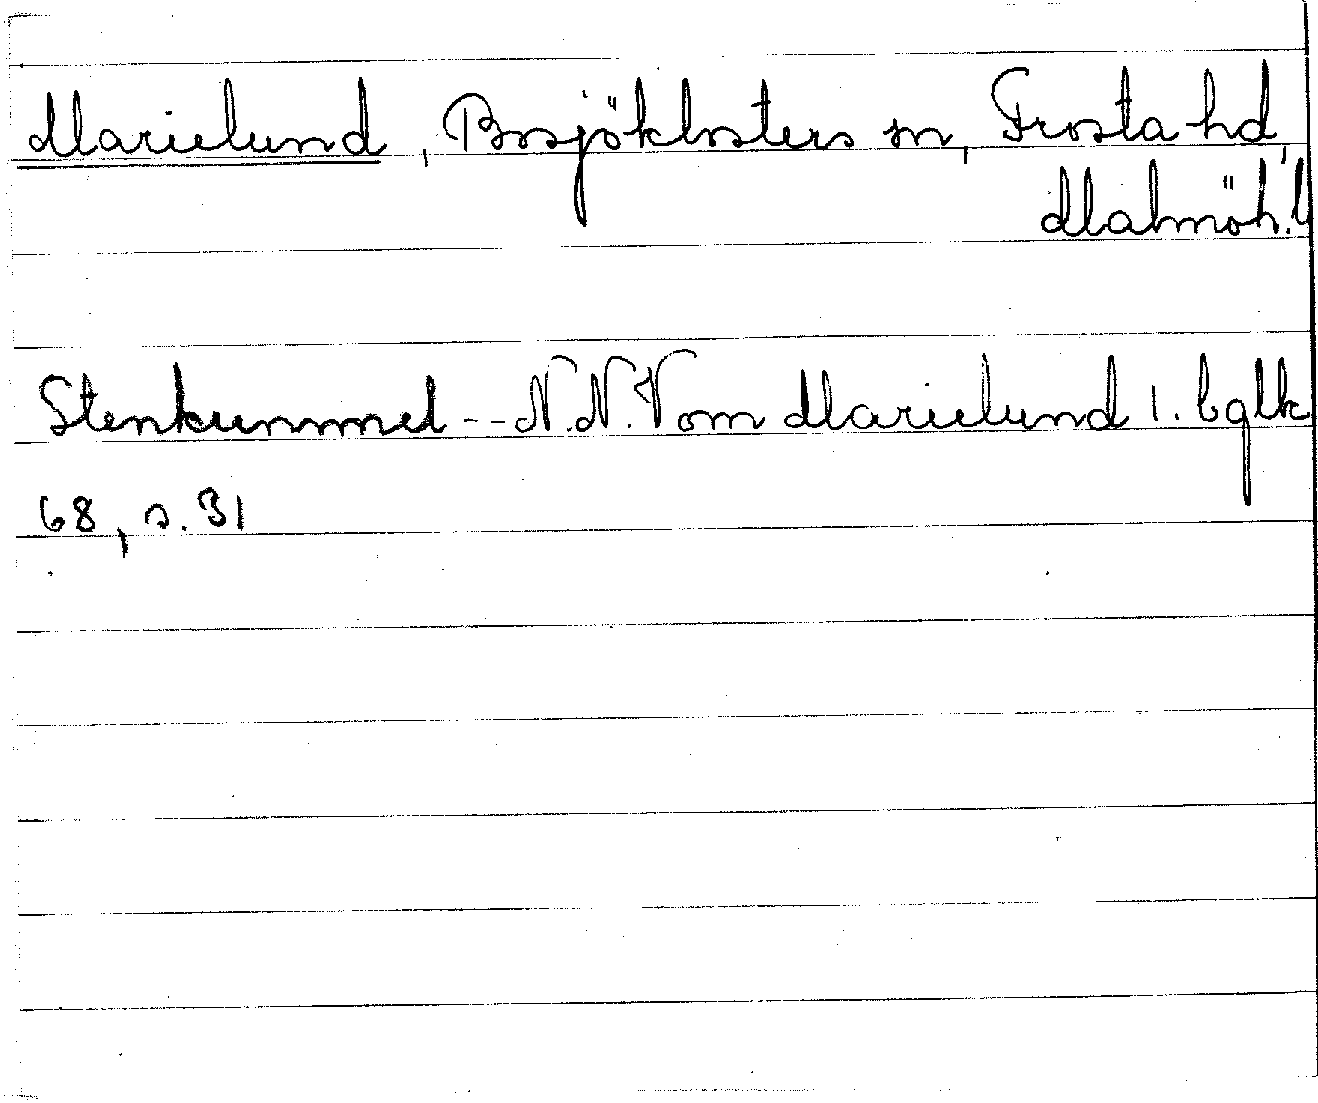 Marielund, Bosjöklosters sn, Frosta hd,
Malmöh. l
Stenkummel -- N.N.V om Marielund 1. bglk
68, s. 31